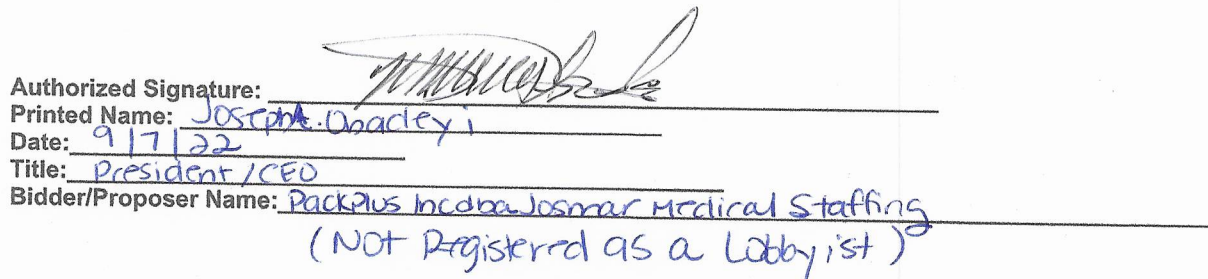 Authorized Signature:
Printed Name: Joseph A. Obadeyi
Date: 9/7/22
Title: President / CEO
Bidder/Proposer Name: Packplus Inc dba Josmar Medical Staffing
(Not Registered as a Lobbyist)